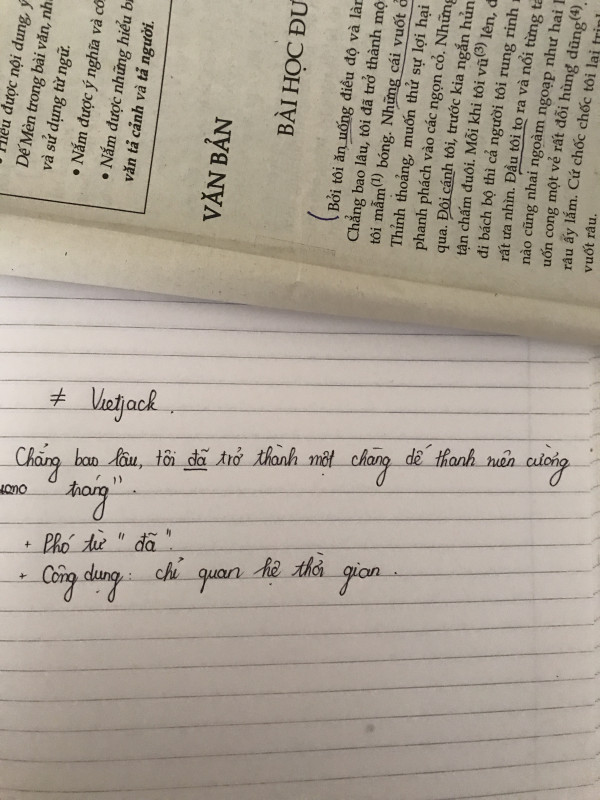 • Hiểu được nội dung, ý
Dế Mèn trong bài văn, nh
và sử dụng từ ngữ.
• Nắm được ý nghĩa và cô
• Nắm được những hiểu b
văn tả cảnh và tả người.
VĂN BẢN
BÀI HỌC ĐƯ
Bởi tôi ăn uống điều độ và làm
Chẳng bao lâu, tôi đã trở thành mộ
tôi mẫm(1) bóng. Những cái vuốt ở
Thỉnh thoảng, muốn thử sự lợi hại
phanh phách vào các ngọn cỏ. Nhữn
qua. Đôi cánh tôi, trước kia ngắn hủn
tận chấm đuôi. Mỗi khi tôi vũ(3) lên, đ
đi bách bộ thì cả người tôi rung rinh
rất ưa nhìn. Đầu tôi to ra và nổi từng tả
nào cũng nhai ngoàm ngoạp như hai l
uốn cong một vẻ rất đỗi hùng dũng(4)
râu ấy lắm. Cứ chốc chốc tôi lại
vuốt râu.
≠ Vietjack.
Chẳng bao lâu, tôi đã trở thành một chàng dế thanh niên cường
tráng".
+ Phó từ "đã".
+ Công dụng: chỉ quan hệ thời gian.